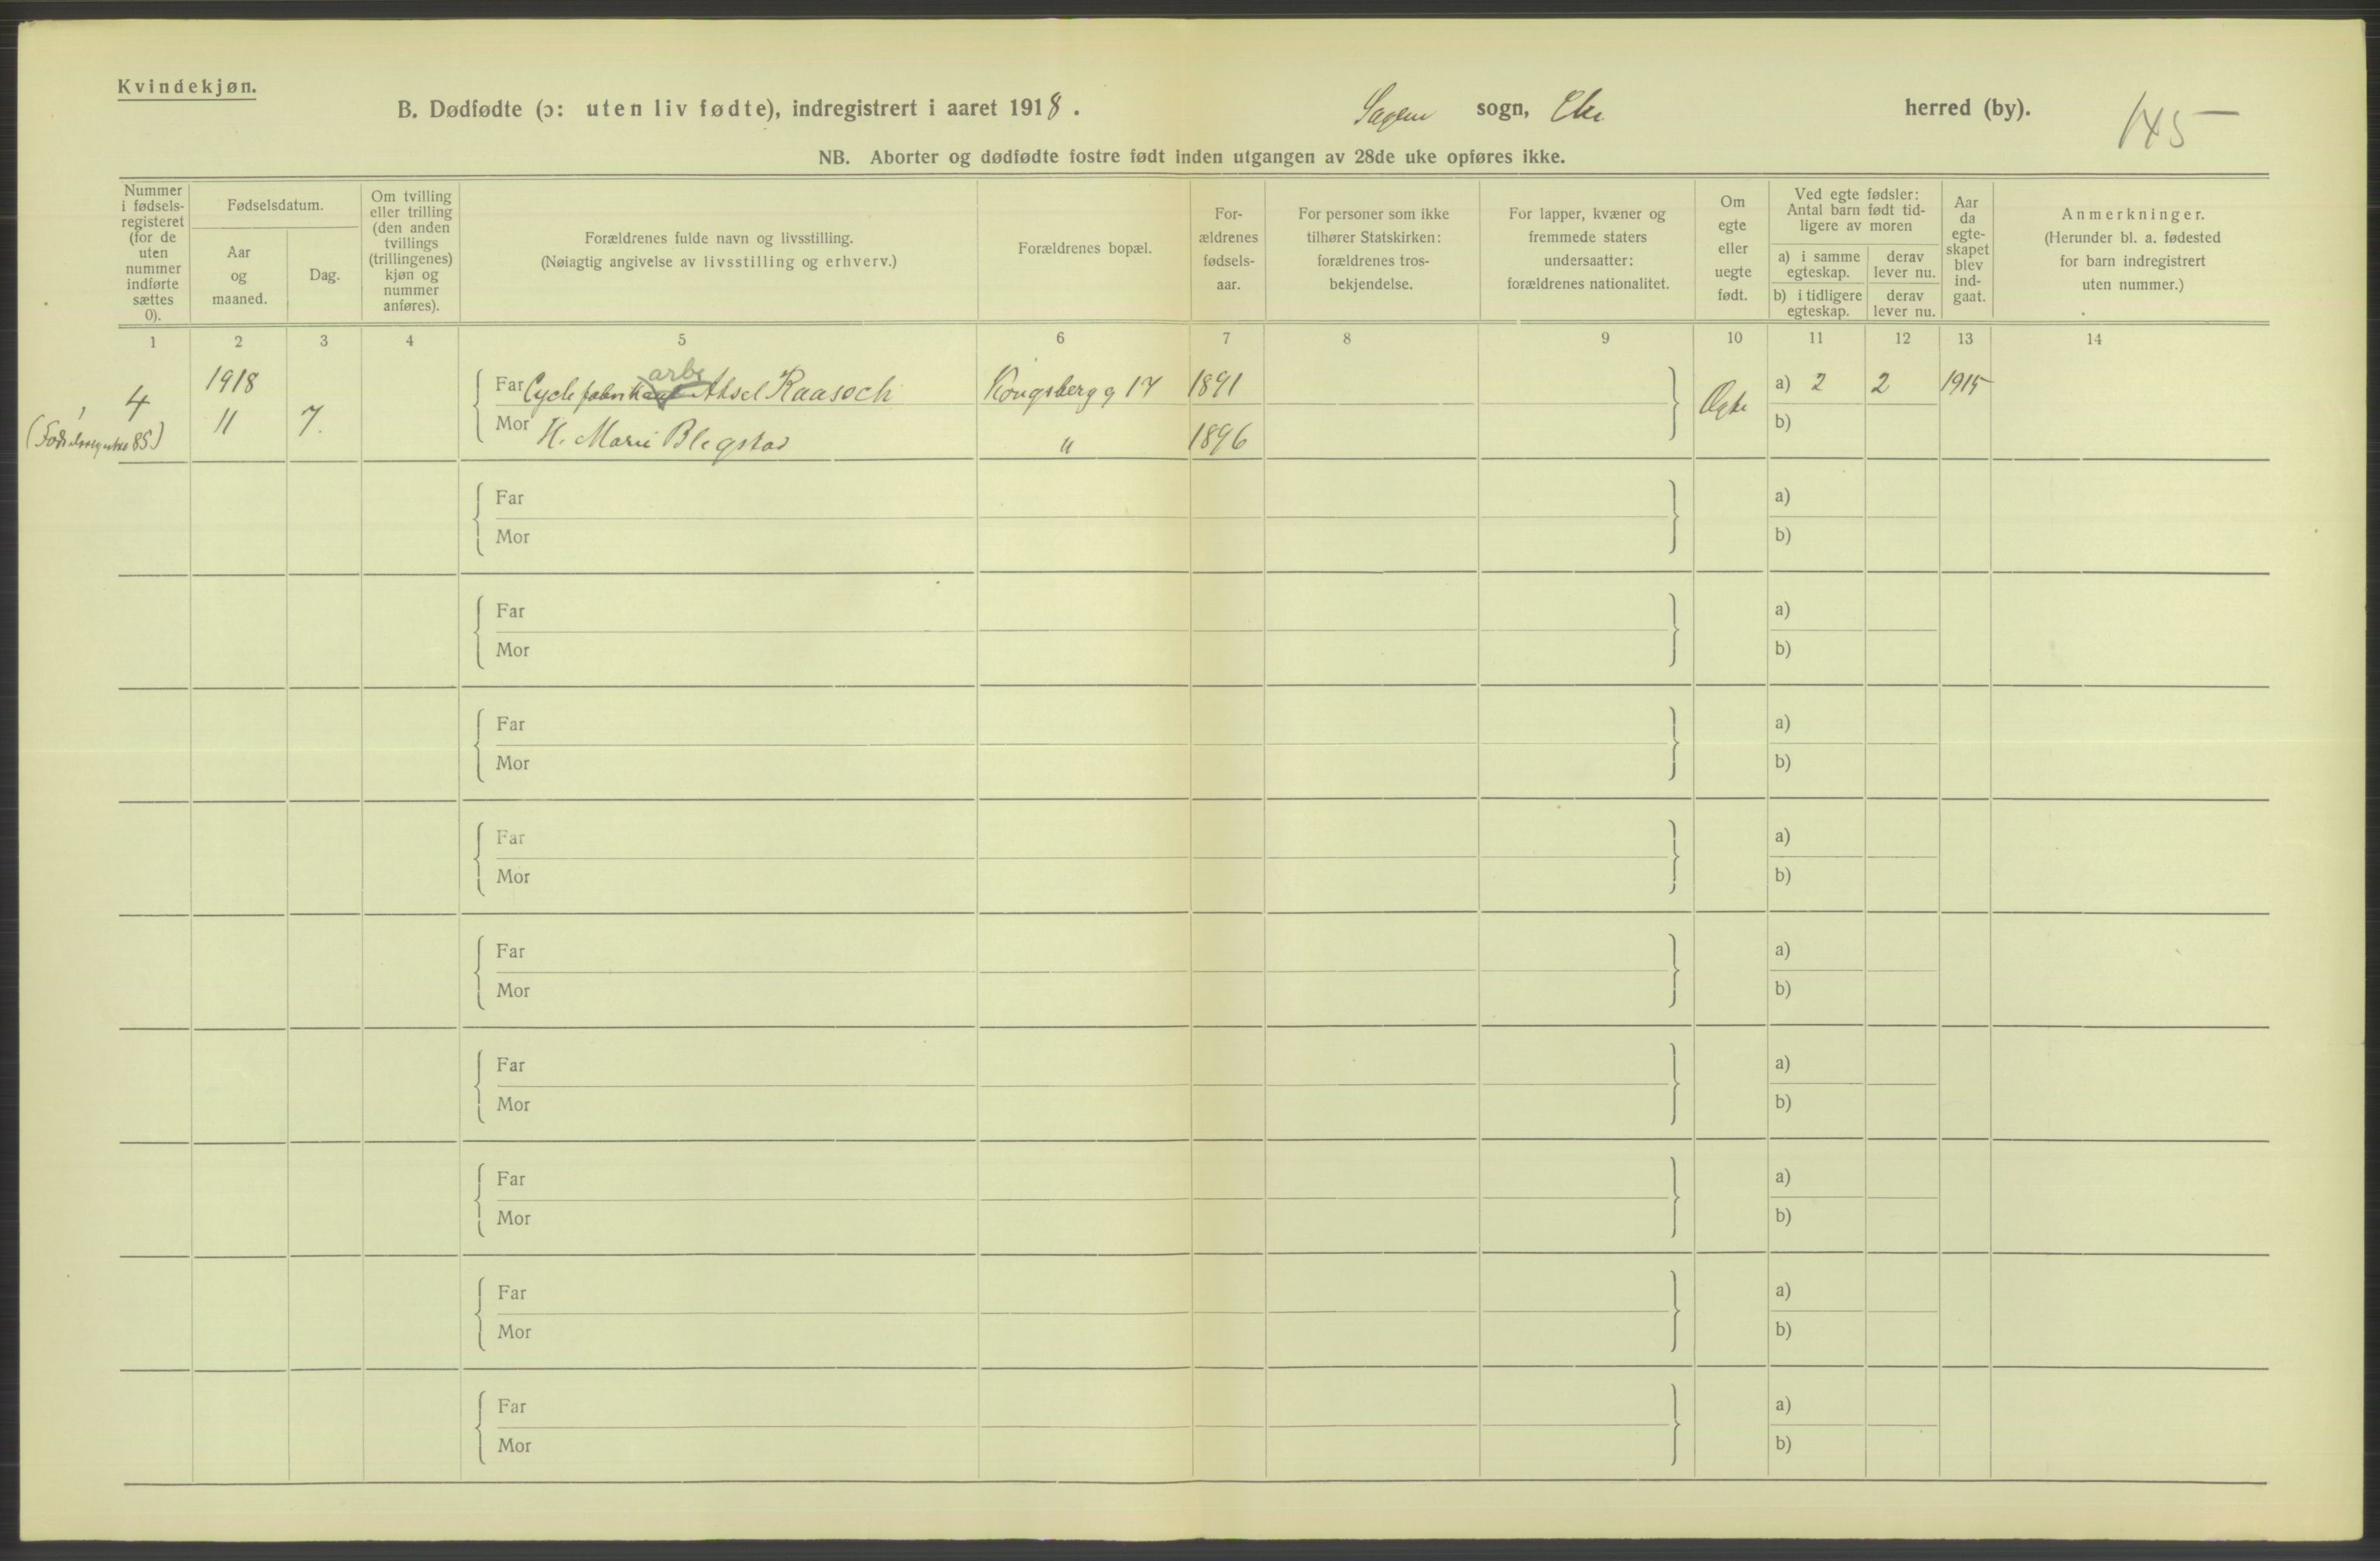 Kvindekjøn.
B. Dødfødte (ɔ: uten liv fødte), indregistrert i aaret 1918. Sagene sogn, herred (by). 145
NB. Aborter og dødfødte fostre født inden utgangen av 28de uke opføres ikke.
Nummer i fødsels-registeret (for de uten nummer indførte sættes 0).
Fødselsdatum.
Aar og maaned.
Dag.
Om tvilling eller trilling (den anden tvillings (trillingenes) kjøn og nummer anføres).
Forældrenes fulde navn og livsstilling.
(Nøiagtig angivelse av livsstilling og erhverv.)
Forældrenes bopæl.
For-ældrenes fødsels-aar.
For personer som ikke tilhører Statskirken: forældrenes tros-bekjendelse.
For lapper, kvæner og fremmede staters undersaatter: forældrenes nationalitet.
Om egte eller uegte født.
Ved egte fødsler: Antal barn født tid-ligere av moren
a) i samme egteskap.
derav lever nu.
b) i tidligere egteskap.
derav lever nu.
Aar da egte-skapet blev ind-gaat.
Anmerkninger.
(Herunder bl. a. fødested for barn indregistrert uten nummer.)
1 2 3 4 5 6 7 8 9 10 11 12 13 14
4 1918 Far Cyclefabrik arb Aksel Raasoch Kongsbergg 17 1891 Egte a) 2 2 1915
85) 11 7. Mor H. Marie Blegstad " 1896 b)
Far a)
Mor b)
Far a)
Mor b)
Far a)
Mor b)
Far a)
Mor b)
Far a)
Mor b)
Far a)
Mor b)
Far a)
Mor b)
Far a)
Mor b)
Far a)
Mor b)